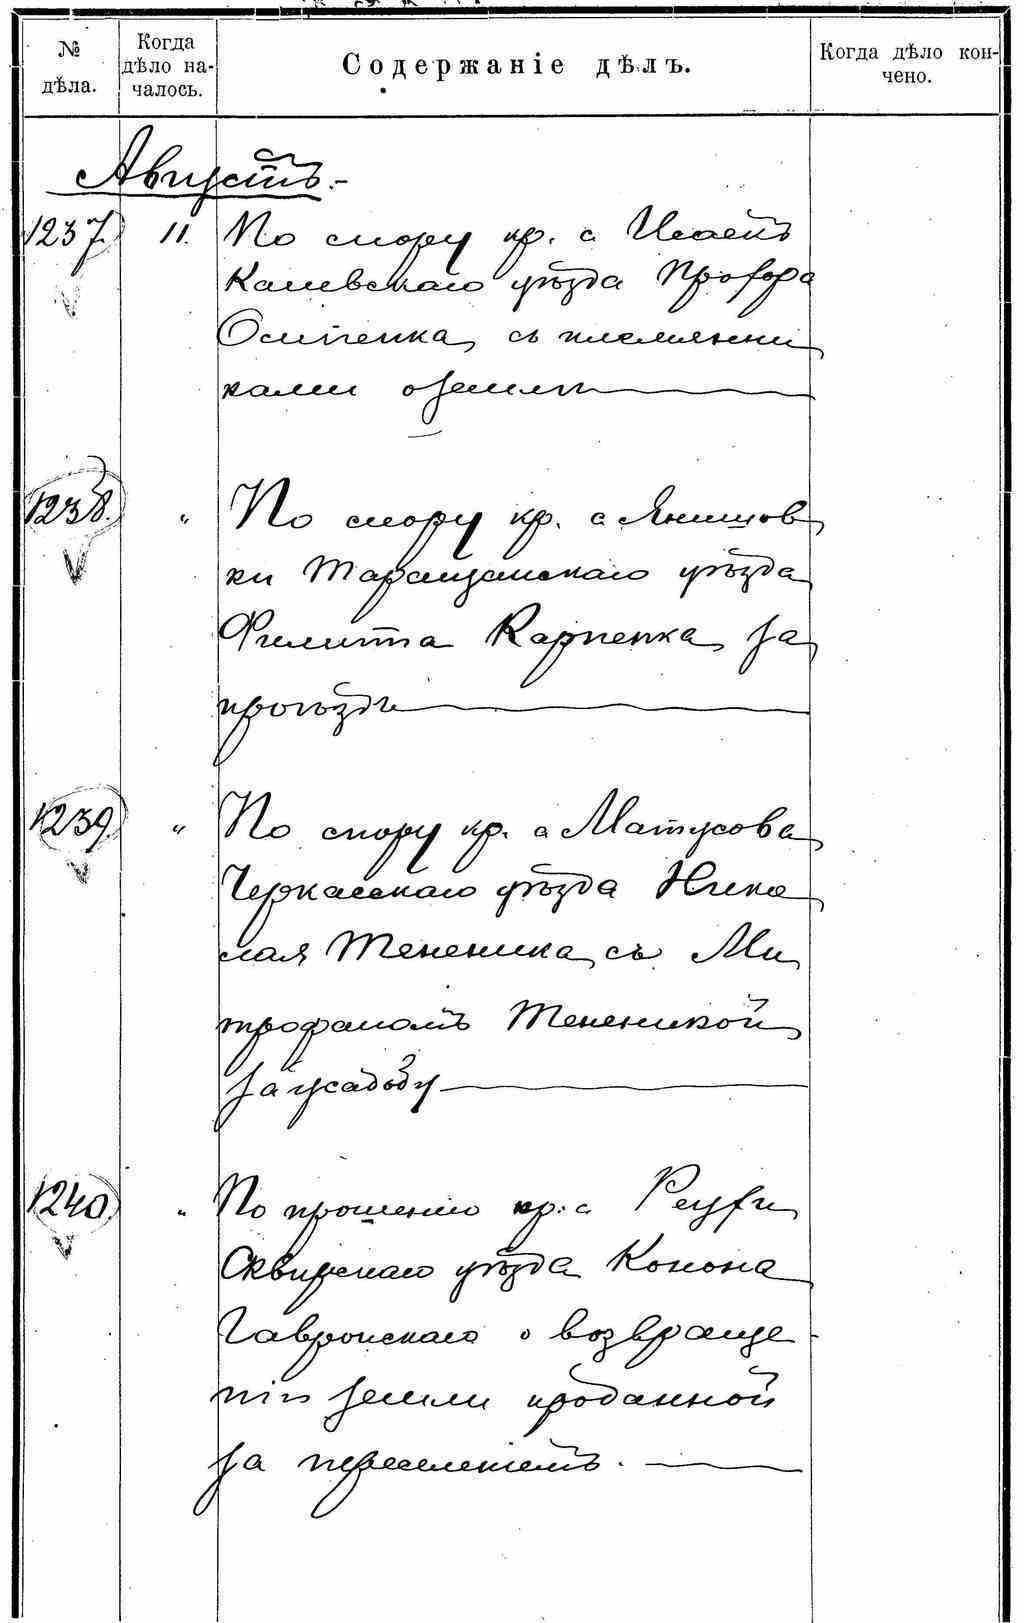 № дѣла.
Когда дѣло на-
чалось.
Содержаніе дѣлъ.
Когда дѣло кон-
чено.
Августъ.-
1237. 11. По спору кр. с.
Каневскаго уѣзда Прохора
Осипенка съ племянни
ками о земли
1238. " По спору кр. с Янишов
ки Таращанскаго уѣзда
Филиппа Карпенка за
проѣздъ
1239. " По спору кр. с Матусова
Черкасскаго уѣзда Нико
лая Тененика съ Ми
трофаномъ Тененикой
за усадьбу
1240. " По прошенію кр. с
Сквирскаго уѣзда Конона
Гавронскаго о возвраще
ніи земли проданной
за переселеніемъ.